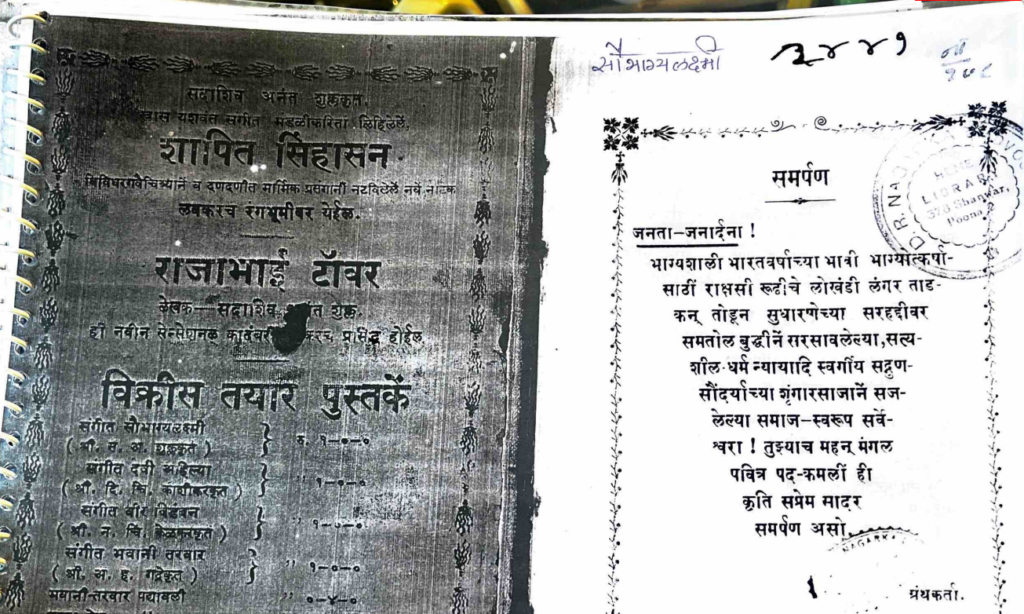 सदाशिव अनंत शुक्लकृत.
खास यशवंत संगीत मंडळीकरितां लिहिलेलें,
शापित सिंहासन
विविधरसवैचित्र्यानें व दणदणीत मार्मिक प्रसंगांनी नटविलेलें नवें नाटक
लवकरच रंगभूमीवर येईल.
राजाभाई टॉवर
लेखक—सदाशिव अनंत शुक्ल.
ही नवीन सेन्सेशनल कादंबरी लवकरच प्रसिद्ध होईल.
विक्रीस तयार पुस्तकें
संगीत सौभाग्यलक्ष्मी
( श्री. स. अ. शुक्लकृत )
रु. १-०-०
संगीत देवी अहिल्या
( श्री. दि. चि. काशीकरकृत )
१-०-०
संगीत वीर विडंबन
( श्री. न. चिं. केळकरकृत )
१-०-०
संगीत भवानी तरवार
( श्री. अ. ह. गद्रेकृत )
१-०-०
भवानी-तरवार पद्यावली
०-४-०
सौभाग्यलक्ष्मी
२४४१
समर्पण
HOME
LIBRARY
Poona
जनता-जनार्दना !
भाग्यशाली भारतवर्षाच्या भावी भाग्योत्कर्षा-
साठीं राक्षसी रूढीचे लोखंडी लंगर ताड-
कन् तोडून सुधारणेच्या सरहद्दीवर
समतोल बुद्धीनें सरसावलेल्या, सत्य-
शील-धर्म न्यायादि स्वर्गीय सद्गुण-
सौंदर्याच्या शृंगारसाजानें सज-
लेल्या समाज-स्वरूप सर्वे-
श्वरा ! तुझ्याच महन् मंगल
पवित्र पद-कमलीं ही
कृति सप्रेम सादर
समर्पण असो.
ग्रंथकर्ता.